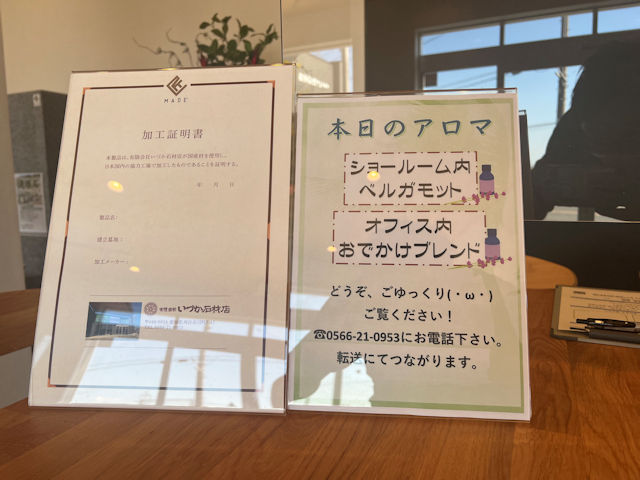 MADE
加工証明書
本製品は、有限会社いづか石材店が国産材を使用し、
日本国内の協力工場で加工したものであることを証明する。
年 月 日
製品名:
建立墓地:
加工メーカー:
有限会社いづか石材店
本日のアロマ
ショールーム内
ベルガモット
オフィス内
おでかけブレンド
どうぞ、ごゆっくり(・ω・)
ご覧ください!
☎0566-21-0953にお電話下さい。
転送にてつながります。